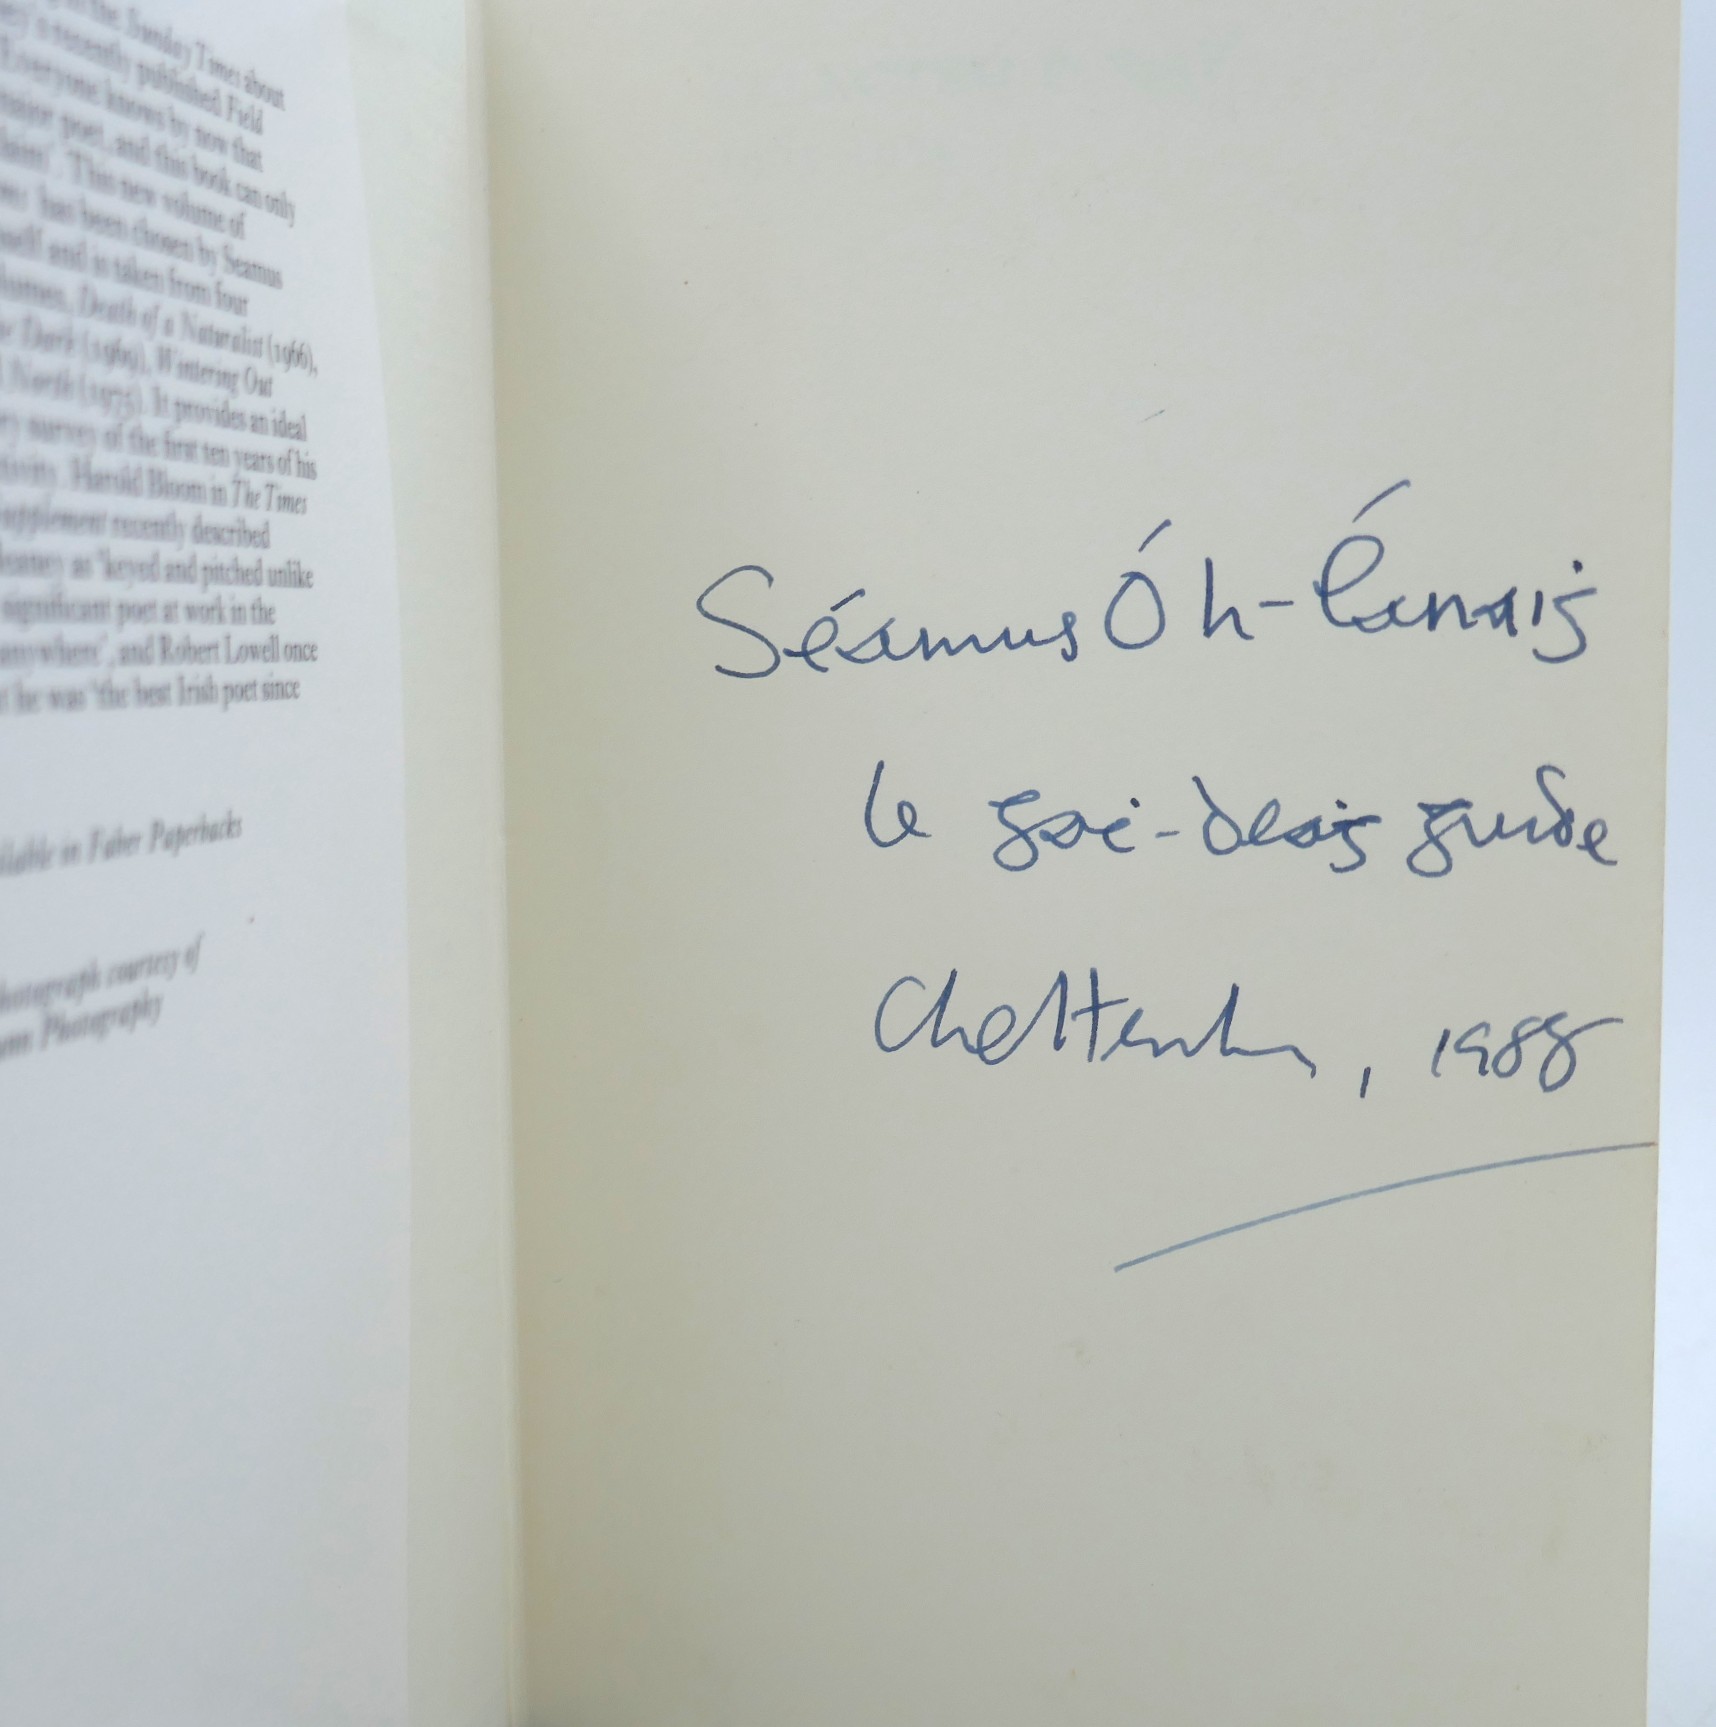 in the Sunday Times about
recently published Field
Everyone knows by now that
major poet, and this book can only
This new volume of
has been chosen by Seamus
and is taken from four
Death of a Naturalist (1966),
Dark (1969), Wintering Out
North (1975). It provides an ideal
survey of the first ten years of his
Harold Bloom in The Times
Supplement recently described
Heaney as 'keyed and pitched unlike
significant poet at work in the
anywhere', and Robert Lowell once
he was 'the best Irish poet since
in Faber Paperbacks
photograph courtesy of
Photography
Séamus Ó h-Éanaig
le
Cheltenham, 1988